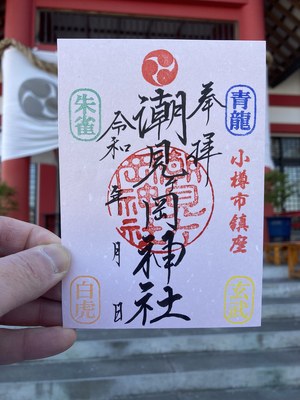 奉拝
青龍
小樽市鎮座
玄武
潮見ヶ岡神社
朱雀
令和 年 月 日
白虎